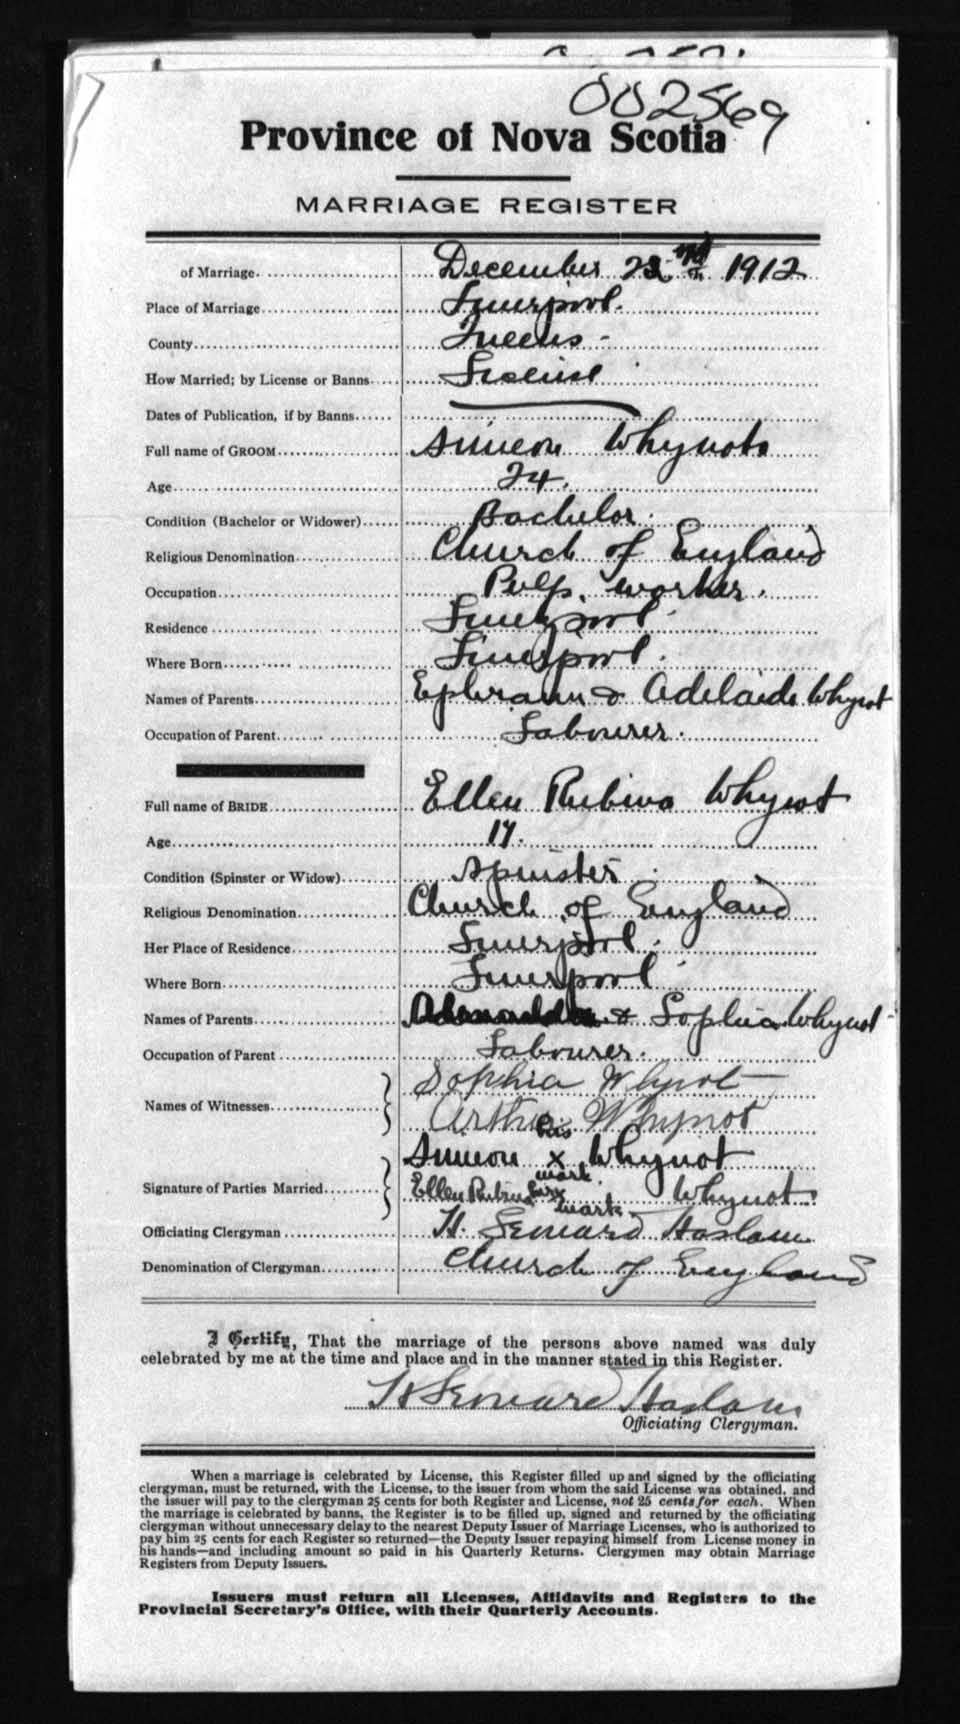 002569
Province of Nova Scotia
MARRIAGE REGISTER
of Marriage. December 1912
Place of Marriage Liverpool.
County Queens -
How Married; by License or Banns License
Dates of Publication, if by Banns
Full name of GROOM Simeon Whynot
Age 24.
Condition (Bachelor or Widower) Bachelor.
Religious Denomination Church of England
Occupation Pulp worker.
Residence Liverpool
Where Born Liverpool.
Names of Parents Ephraim & Adelaide Whynot
Occupation of Parent Labourer.
Full name of BRIDE Ellen Rubina Whynot
Age 17.
Condition (Spinster or Widow) Spinster
Religious Denomination Church of England
Her Place of Residence Liverpool.
Where Born Liverpool
Names of Parents & Sophia Whynot
Occupation of Parent Labourer.
Names of Witnesses Sophia Whynot
Arthur Whynot
his
Simeon x Whynot
mark.
Signature of Parties Married Ellen Rubina her x Whynot
mark
Officiating Clergyman H. Haslam
Denomination of Clergyman Church of England
I Certify, That the marriage of the persons above named was duly
celebrated by me at the time and place and in the manner stated in this Register.
H Haslam
Officiating Clergyman.
When a marriage is celebrated by License, this Register filled up and signed by the officiating
clergyman, must be returned, with the License, to the issuer from whom the said License was obtained, and
the issuer will pay to the clergyman 25 cents for both Register and License, not 25 cents for each. When
the marriage is celebrated by banns, the Register is to be filled up, signed and returned by the officiating
clergyman without unnecessary delay to the nearest Deputy Issuer of Marriage Licenses, who is authorized to
pay him 25 cents for each Register so returned—the Deputy Issuer repaying himself from License money in
his hands—and including amount so paid in his Quarterly Returns. Clergymen may obtain Marriage
Registers from Deputy Issuers.
Issuers must return all Licenses, Affidavits and Registers to the
Provincial Secretary's Office, with their Quarterly Accounts.